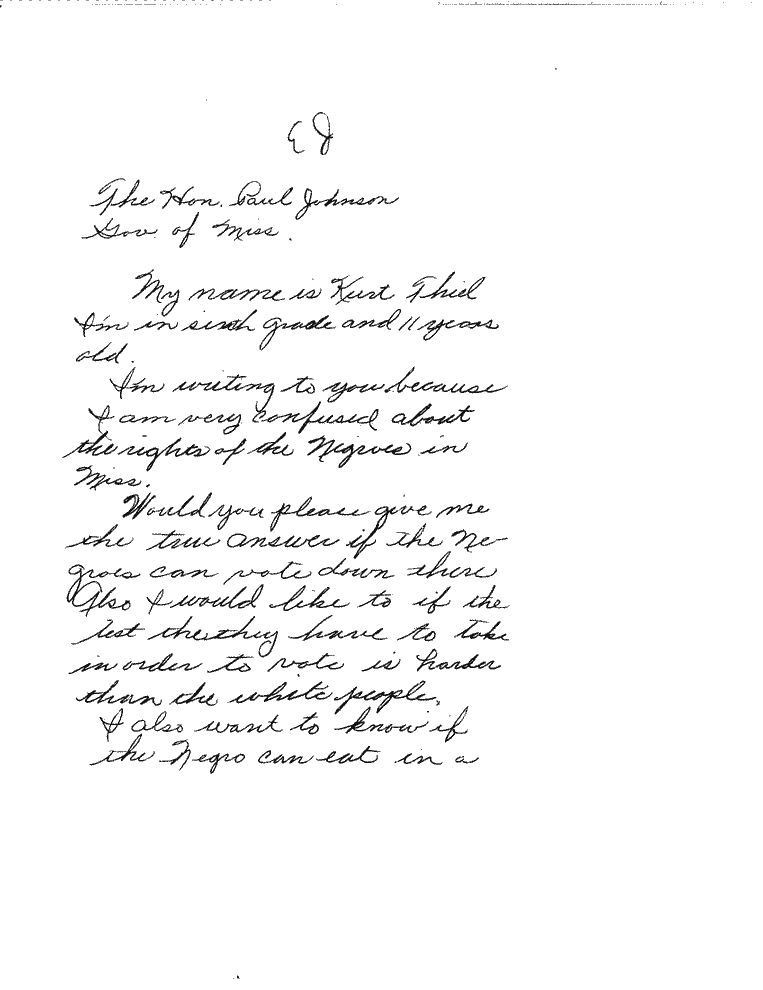 EJ
The Hon. Paul Johnson
Gov. of Miss.
My name is Kurt Thiel
I'm in sixth grade and 11 years
old.
I'm writing to you because
I am very confused about
the rights of the Negroes in
Miss.
Would you please give me
the true answer if the Ne-
groes can vote down there
Also I would like to if the
test they have to take
in order to vote is harder
than the white people.
I also want to know if
the Negro can eat in a